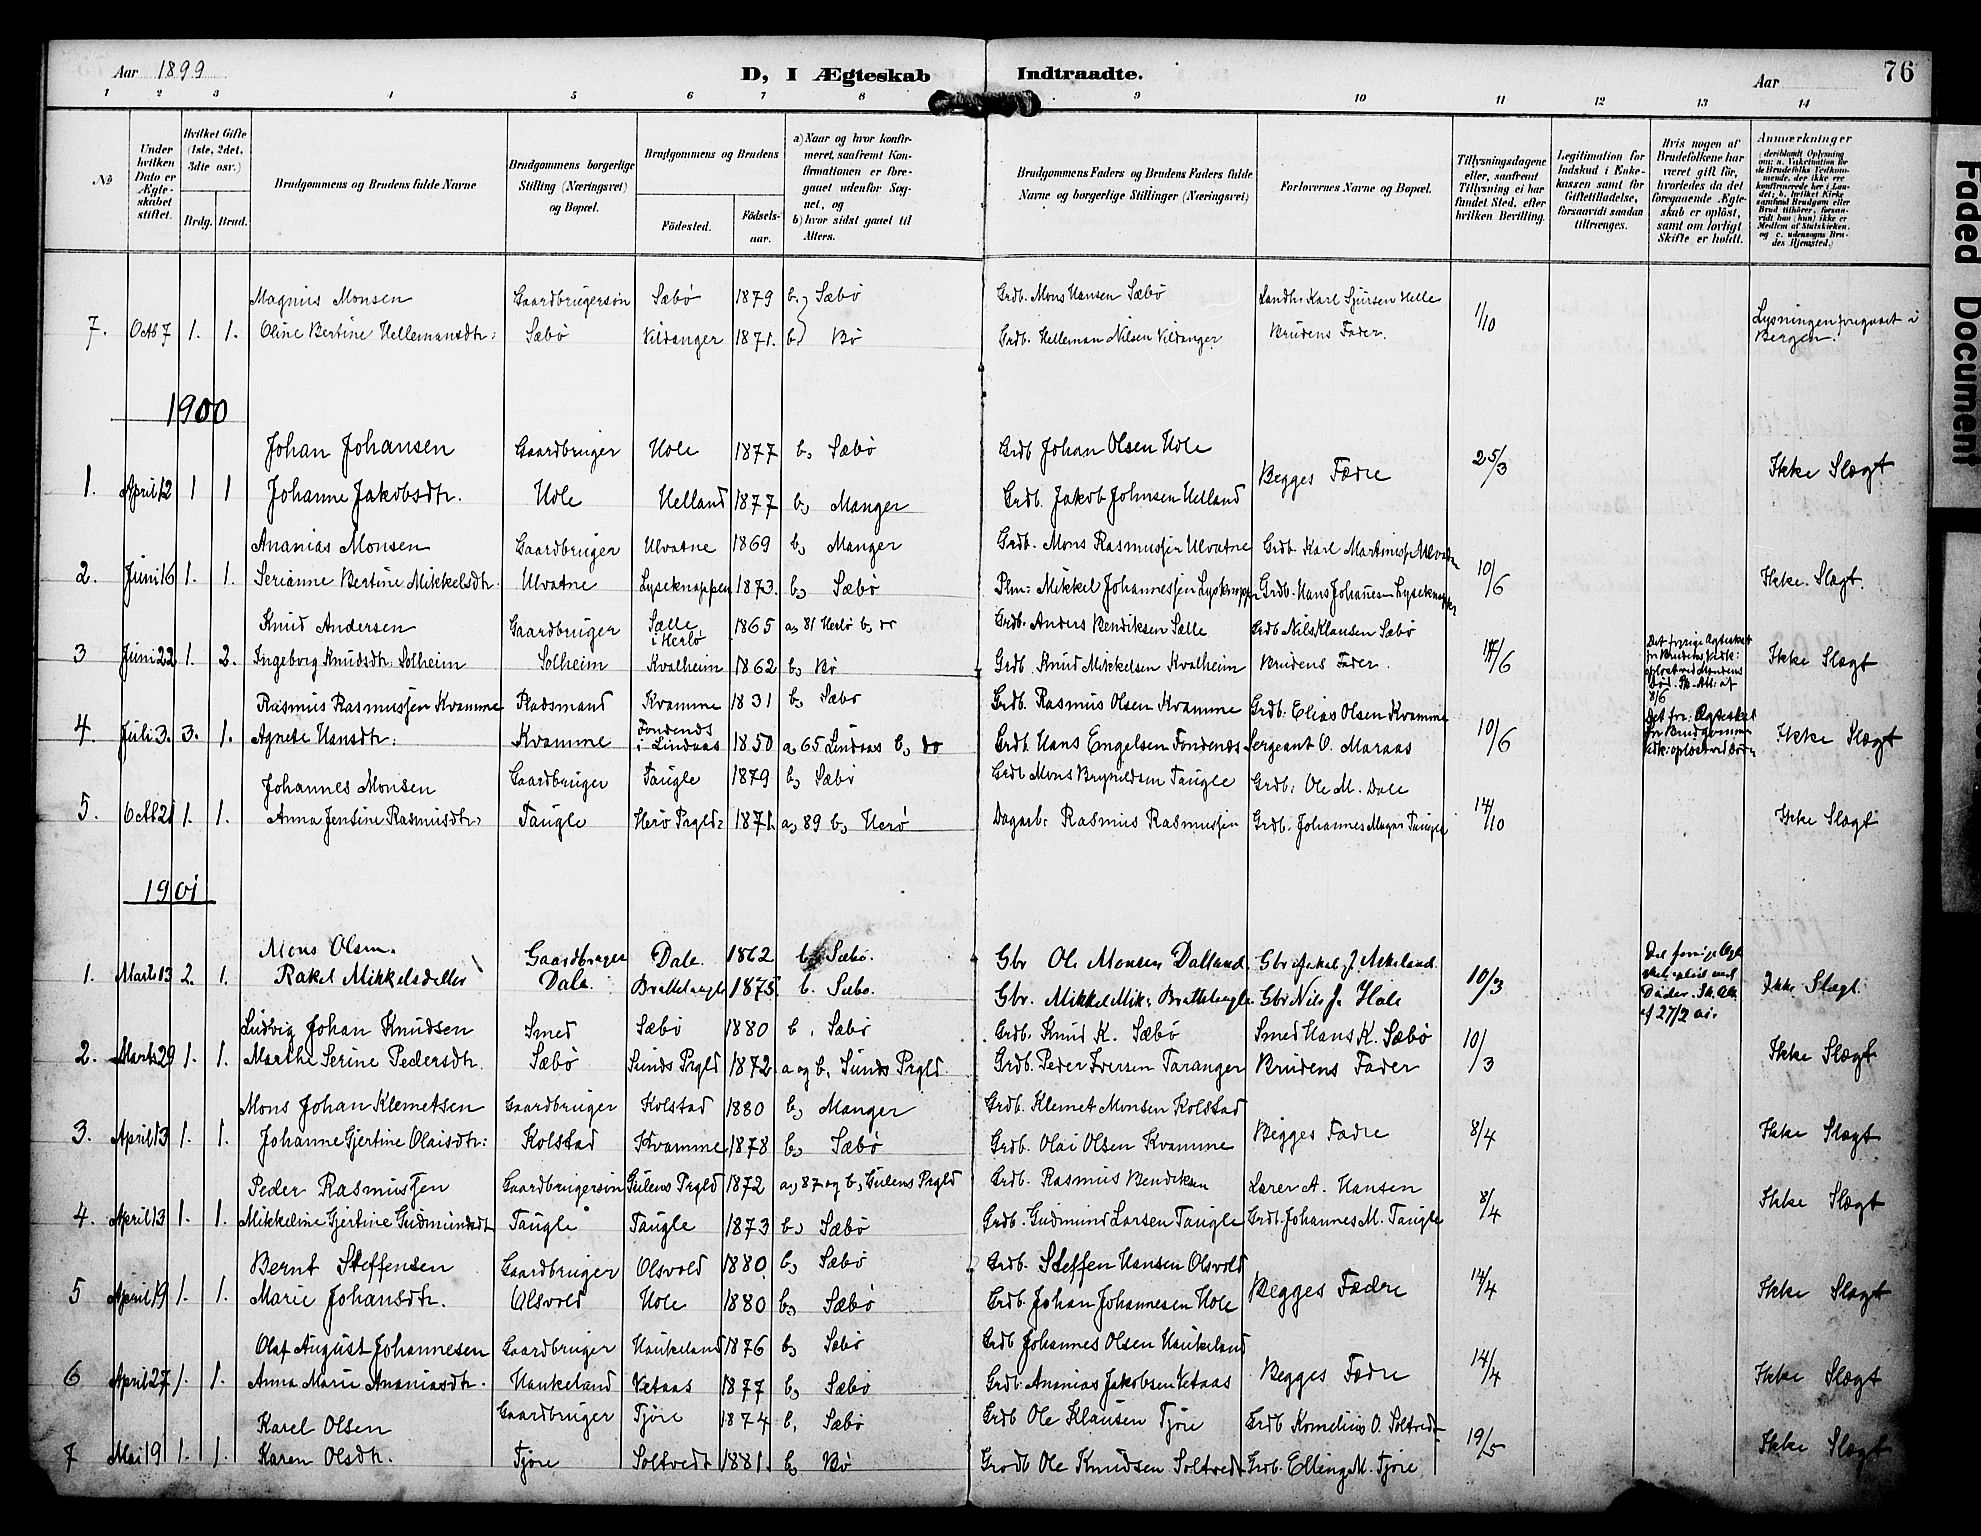 Aar 1899
D, I Ægteskab Indtraadte.
Aar
76
1 2 3 4 5 6 7 8 9 10 11 12 13 14
No
Under hvilken Dato er Ægteskabet stiftet.
Hvilket Gifte (1ste, 2det, 3die osv.)
Brdg. Brud.
Brudgommens og Brudens fulde Navne
Brudgommens borgerlige Stilling (Næringsvei) og Bopæl.
Brudgommens og Brudens
Fødested.
Fødselsaar.
a) Naar og hvor konfirmeret, saafremt Konfirmationen er foregaaet udenfor Sognet, og
b) hvor sidst gaaet til Alters.
Brudgommens Faders og Brudens Faders fulde Navne og borgerlige Stillinger (Næringsvei)
Forlovernes Navne og Bopæl.
Tillysningsdagene eller, saafremt Tillysning ei har fundet Sted, efter hvilken Bevilling.
Legitimation for Indskud i Enkekassen samt for Giftetilladelse, forsaavidt saadan tiltrænges.
Hvis nogen af Brudefolkene har været gift før, hvorledes da det foregaaende Ægteskab er opløst, samt om lovligt Skifte er holdt.
Anmærkninger
Magnus Monsen Gaardbrugersøn Sæbø 1879 b. Sæbø Grdb. Mons Hansen Sæbø Landh. Karl Sjursen Helle 1/10
7. Octb 7 1. 1. Oline Bertine Hellemansdtr: Sæbø Vildanger 1871. b) Bø Grdb. Helleman Nilsen Vildanger Brudens Fader. Lysningen foregaaet i Bergen.
1900
Johan Johansen Gaardbruger Hole 1877 b, Sæbø Grdb Johan Olsen Hole Begges Fædre 25/3 Ikke Slægt
1. April 12 1 1 Johanne Jakobsdtr. Hole Helland 1877 b, Manger Grdb. Jakob Johnsen Helland
Ananias Monsen Gaardbruger Ulvatne 1869 b, Manger Grdb. Mons Rasmussen Ulvatne Grdb. Karl Martinisen 10/6
2. Juni 16 1. 1. Serianne Bertine Mikkelsdtr. Ulvatne Lyseknappen 1873. b, Sæbø Plm: Mikkel Johannessen Lyseknappen Grdb. Hans Johannesen Lyseknappen Ikke Slægt.
Knud Andersen Gaardbruger Sælle i Herlø 1865 a, 81 Herlø b, do Grdb. Anders Bendiksen Sælle Grdb Nils Klausen Sæbø 17/6
3 Juni 22 1. 2. Ingeborg Knudsdtr. Solheim Solheim Kvalheim 1862 b, Bø Grdb. Knud Mikkelsen Kvalheim Brudens Fader. Ikke Slægt
Det forrige Ægteskab for Brudens Vedk: opløst ved Mandens Død. Sk. Att: af 8/6
Rasmus Rasmussen Kvamme Pladsmand Kvamme 1831 b, Sæbø Grdb. Rasmus Olsen Kvamme Grdb. Elias Olsen Kvamme 10/6
4. Juli 3. 3. 1. Agnete Hansdtr: Kvamme Fondenes i Lindaas 1850 a, 65 Lindaas b, do Grdb. Hans Engelsen Fondenes Sergeant O. Maraas Ikke Slægt
Det for: Ægteskab for Brudgommens Vedk: opløst ved Døden
Johannes Monsen Gaardbruger Taugle 1879 b, Sæbø Grdb Mons Brynildsen Taugle Grdb: Ole M. Dale 14/10
5. Octb 21 1. 1. Anna Jentine Rasmusdtr. Taugle Herø Prgld: 1871. a, 89 b, Herø Dagarb: Rasmus Rasmussen Grdb. Johannes Magnus Taugle Ikke Slægt
1901
Mons Olsen. Gaardbruger Dale. 1862 b. Sæbø. Gbr Ole Monsen Dalland. 10/3
1. Marts 13 2. 1. Rakel Mikkelsdatter Dale. Brattetaugle 1875. b. Sæbø. Gbr. Mikkel Mik: Brattetaugle Gbr Nils J. Hole Ikke Slægt.
Ludvig Johan Knudsen Smed Sæbø 1880 b. Sæbø Grdb. Knud K. Sæbø Smed Hans K. Sæbø 10/3
2. Marts 29 1. 1. Marthe Serine Pedersdtr. Sæbø Sunds Prgld 1872 a og b, Sunds Prgld. Grdb. Peder Iversen Taranger Brudens Fader Ikke Slægt
Mons Johan Klemetsen Gaardbruger Kolstad 1880 b, Manger Grdb. Klemet Monsen Kolstad Begges Fædre 8/4
3. April 13 1. 1. Johanne Gjertine Olaisdtr: Kolstad Kvamme 1878 b, Sæbø Grdb. Olai Olsen Kvamme Ikke Slægt
Peder Rasmussen Gaardbrugersøn Gulens Prgld 1872 a, 87 og b, Gulens Prgld Grdb. Rasmus Bendiksen Lærer A. Hansen 8/4
4. April 13 1. 1. Mikkeline Gjertine Gudmundsdtr Taugle Taugle 1873 b, Sæbø Grdb. Gudmund Larsen Taugle Grdb. Johannes M. Taugle Ikke Slægt
Bernt Steffensen Gaardbruger Olsvold 1880. b, Sæbø Grdb. Steffen Hansen Olsvold Begges Fædre 14/4
5 April 19 1. 1. Marie Johansdtr. Olsvold Hole 1880 b, Sæbø Grdb. Johan Johannesen Hole Ikke Slægt
Olaf August Johannesen Gaardbruger Haukeland 1876 b, Sæbø Grdb Johannes Olsen Haukeland Begges Fædre 14/4
6 April 27 1. 1. Anna Marie Ananiasdtr. Haukeland Vetaas 1877 b, Sæbø Grdb. Ananias Jakobsen Vetaas Ikke Slægt
Karel Olsen Gaardbruger Tjore 1874 b, Sæbø Grdb Ole Klausen Tjore Grdb Kornelius O. Soltvedt 19/5
7 Mai 19 1. 1. Karen Olsdtr. Tjore Soltvedt 1881. b, Bø Grdb Ole Knudsen Soltvedt Grdb. Elling M. Tjore Ikke Slægt
Faded Document